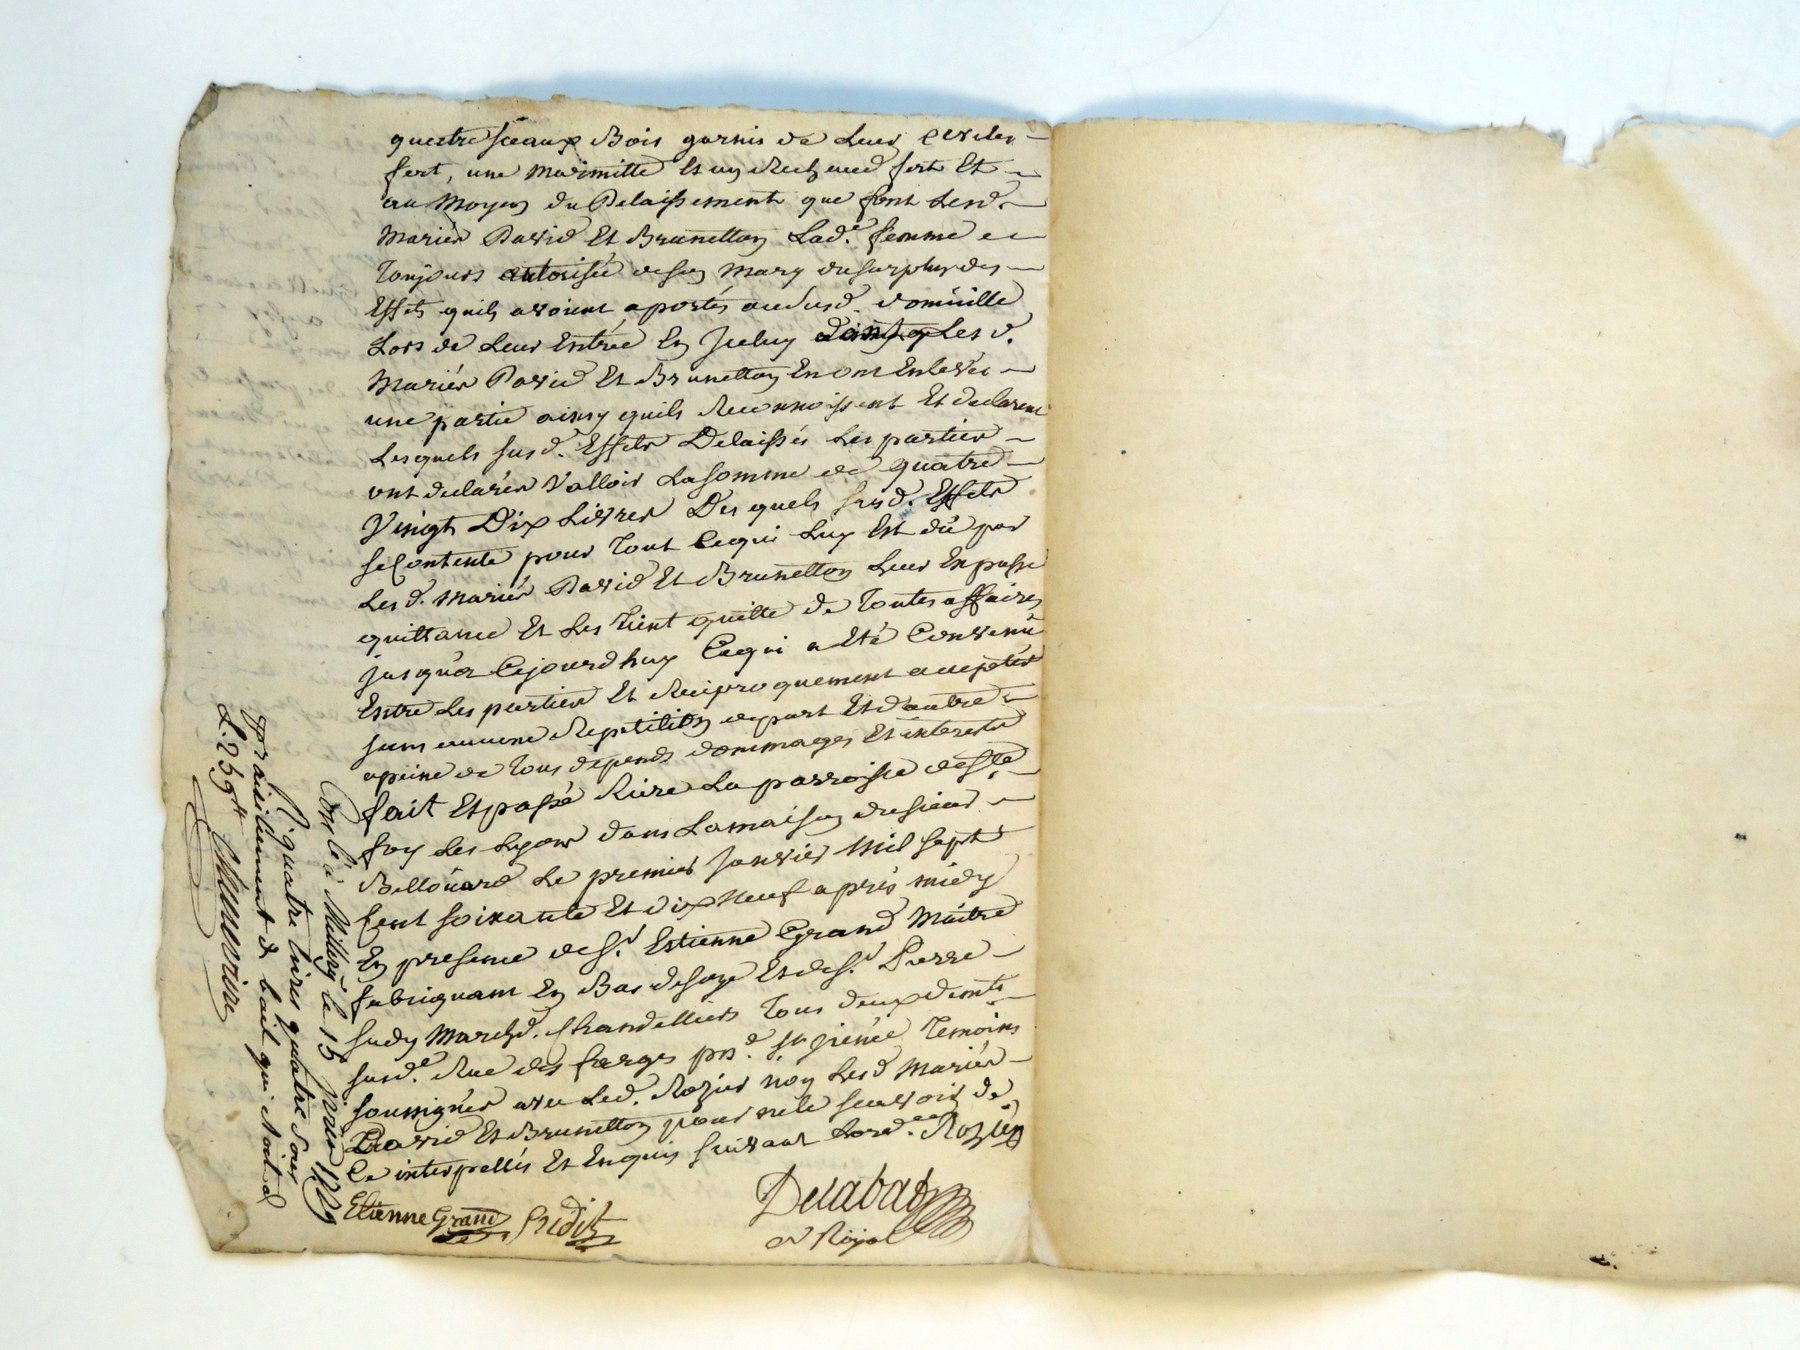 quatre sceaux Bois garnis de Leur cercles
fert, une Marmitte Et un Rechaud fert Et
au Moyen du Delaissement que font Lesd.
Mariés David Et Brunetton Lad.e femme
Toujours autorisée de son Mary du surplus des
Effets quils avoient aportés audusd. domicille
Lors de Leur Entrée En Iceluy Les d.
Mariés David Et Brunetton En ont Enlevés
une partie ainsy quils Reconnoissent Et declarent
Lesquels susd. Effets Delaissés Les parties
ont declarés Valloir La somme de quatre
Vingt Dix Livres Des quels susd. Effets
se Contente pour Tout Cequi Luy Est dû par
Les d. Mariés David Et Brunetton Leur En passe
quittance Et Les Tient quitte de Toutes affaires
jusqua Cejourdhuy Cequi a Eté Convenû
Entre Les parties Et Reciproquement acceptés
sans aucune Repetition de part Et d'autre
apeine de Tous depends dommages Et interests
fait Et passé Riere La parroisse de Ste
foy Les Lyon dans La maison du sieur
Bellouard Le premier Janvier Mil sept
Cent soixante Et Dix Neuf apres midy
En presence de S.r Estienne Grand Maitre
fabriquant En Bas de soye Et de S.r Pierre
Marchd. Chandellier Tous deux demts
susd.e Rue des farges Temoins
soussignés avec Led. Rozier non Lesd Mariés
David Et Brunetton pour ne le scavoir de
Ce interpellés Et Enquis suivant Lord.ce Rozier
Etienne Grand
Delabat
Nre Royal
Con.lé à Millery le 15 janvier 1779
R. quatre livres quatre sous
L. 2 5 9